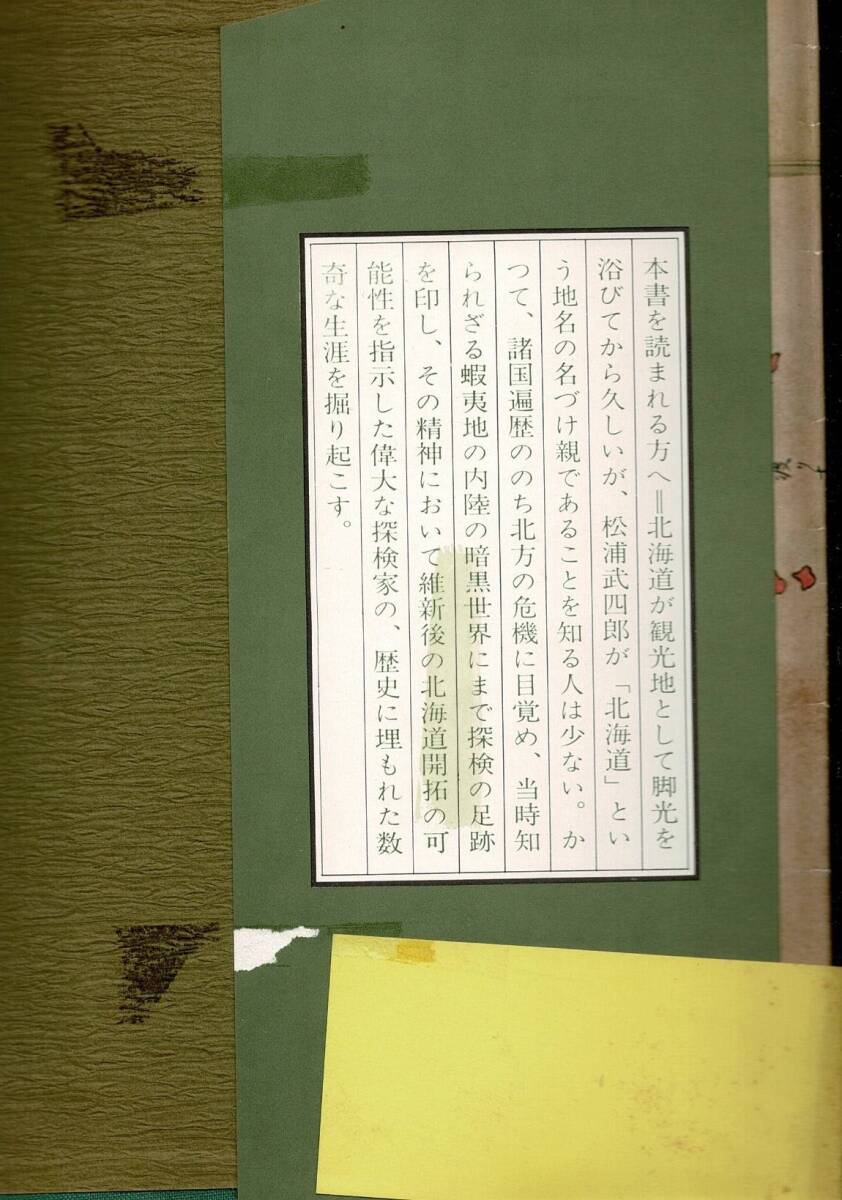 本書を読まれる方へ＝北海道が観光地として脚光を
浴びてから久しいが、松浦武四郎が「北海道」とい
う地名の名づけ親であることを知る人は少ない。か
つて、諸国遍歴ののち北方の危機に目覚め、当時知
られざる蝦夷地の内陸の暗黒世界にまで探検の足跡
を印し、その精神において維新後の北海道開拓の可
能性を指示した偉大な探検家の、歴史に埋もれた数
奇な生涯を掘り起こす。